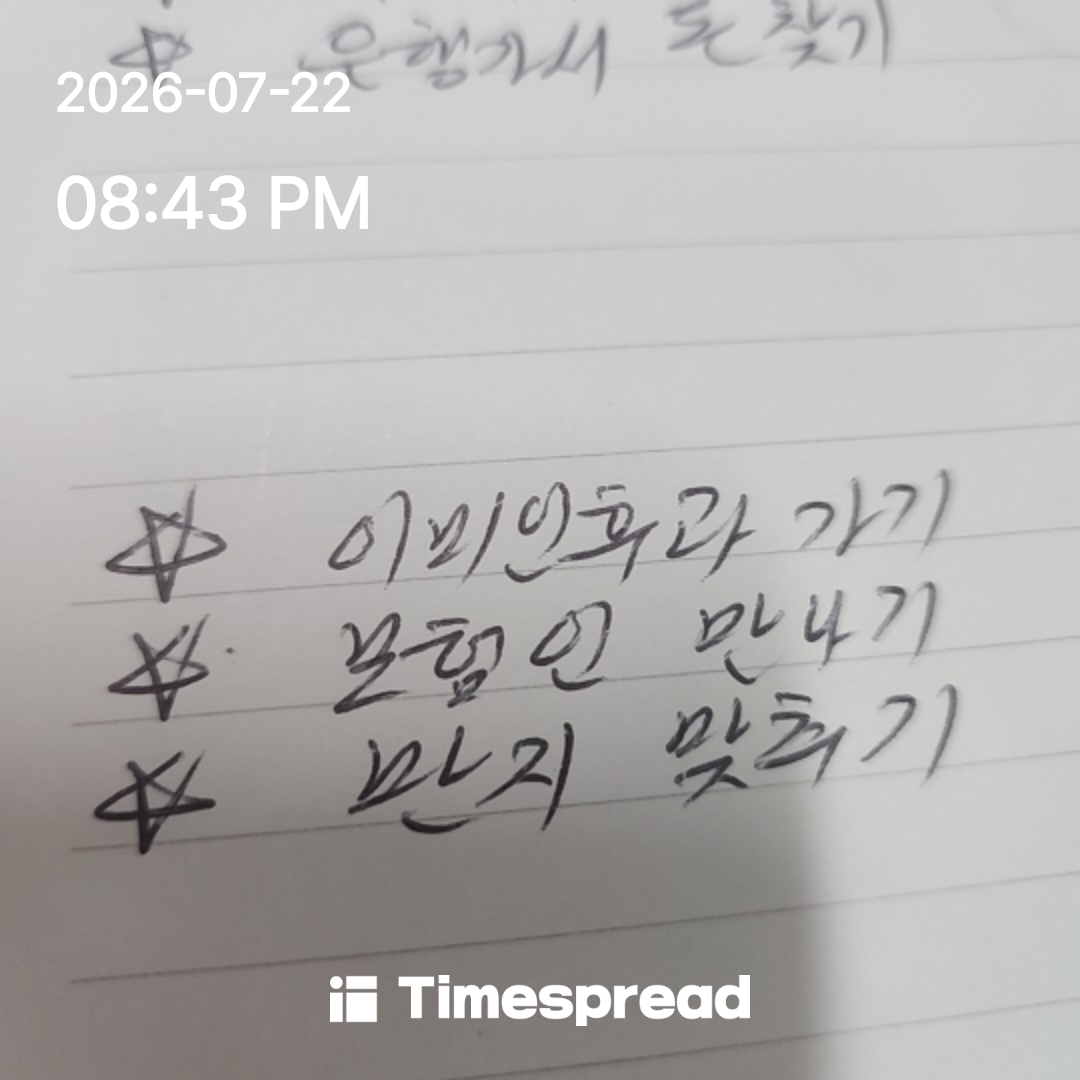 ☆ 은행가서 돈 찾기
2026-07-22
08:43 PM
☆ 이비인후과 가기
☆ 보험인 만나기
☆ 반지 맞취기
Timespread